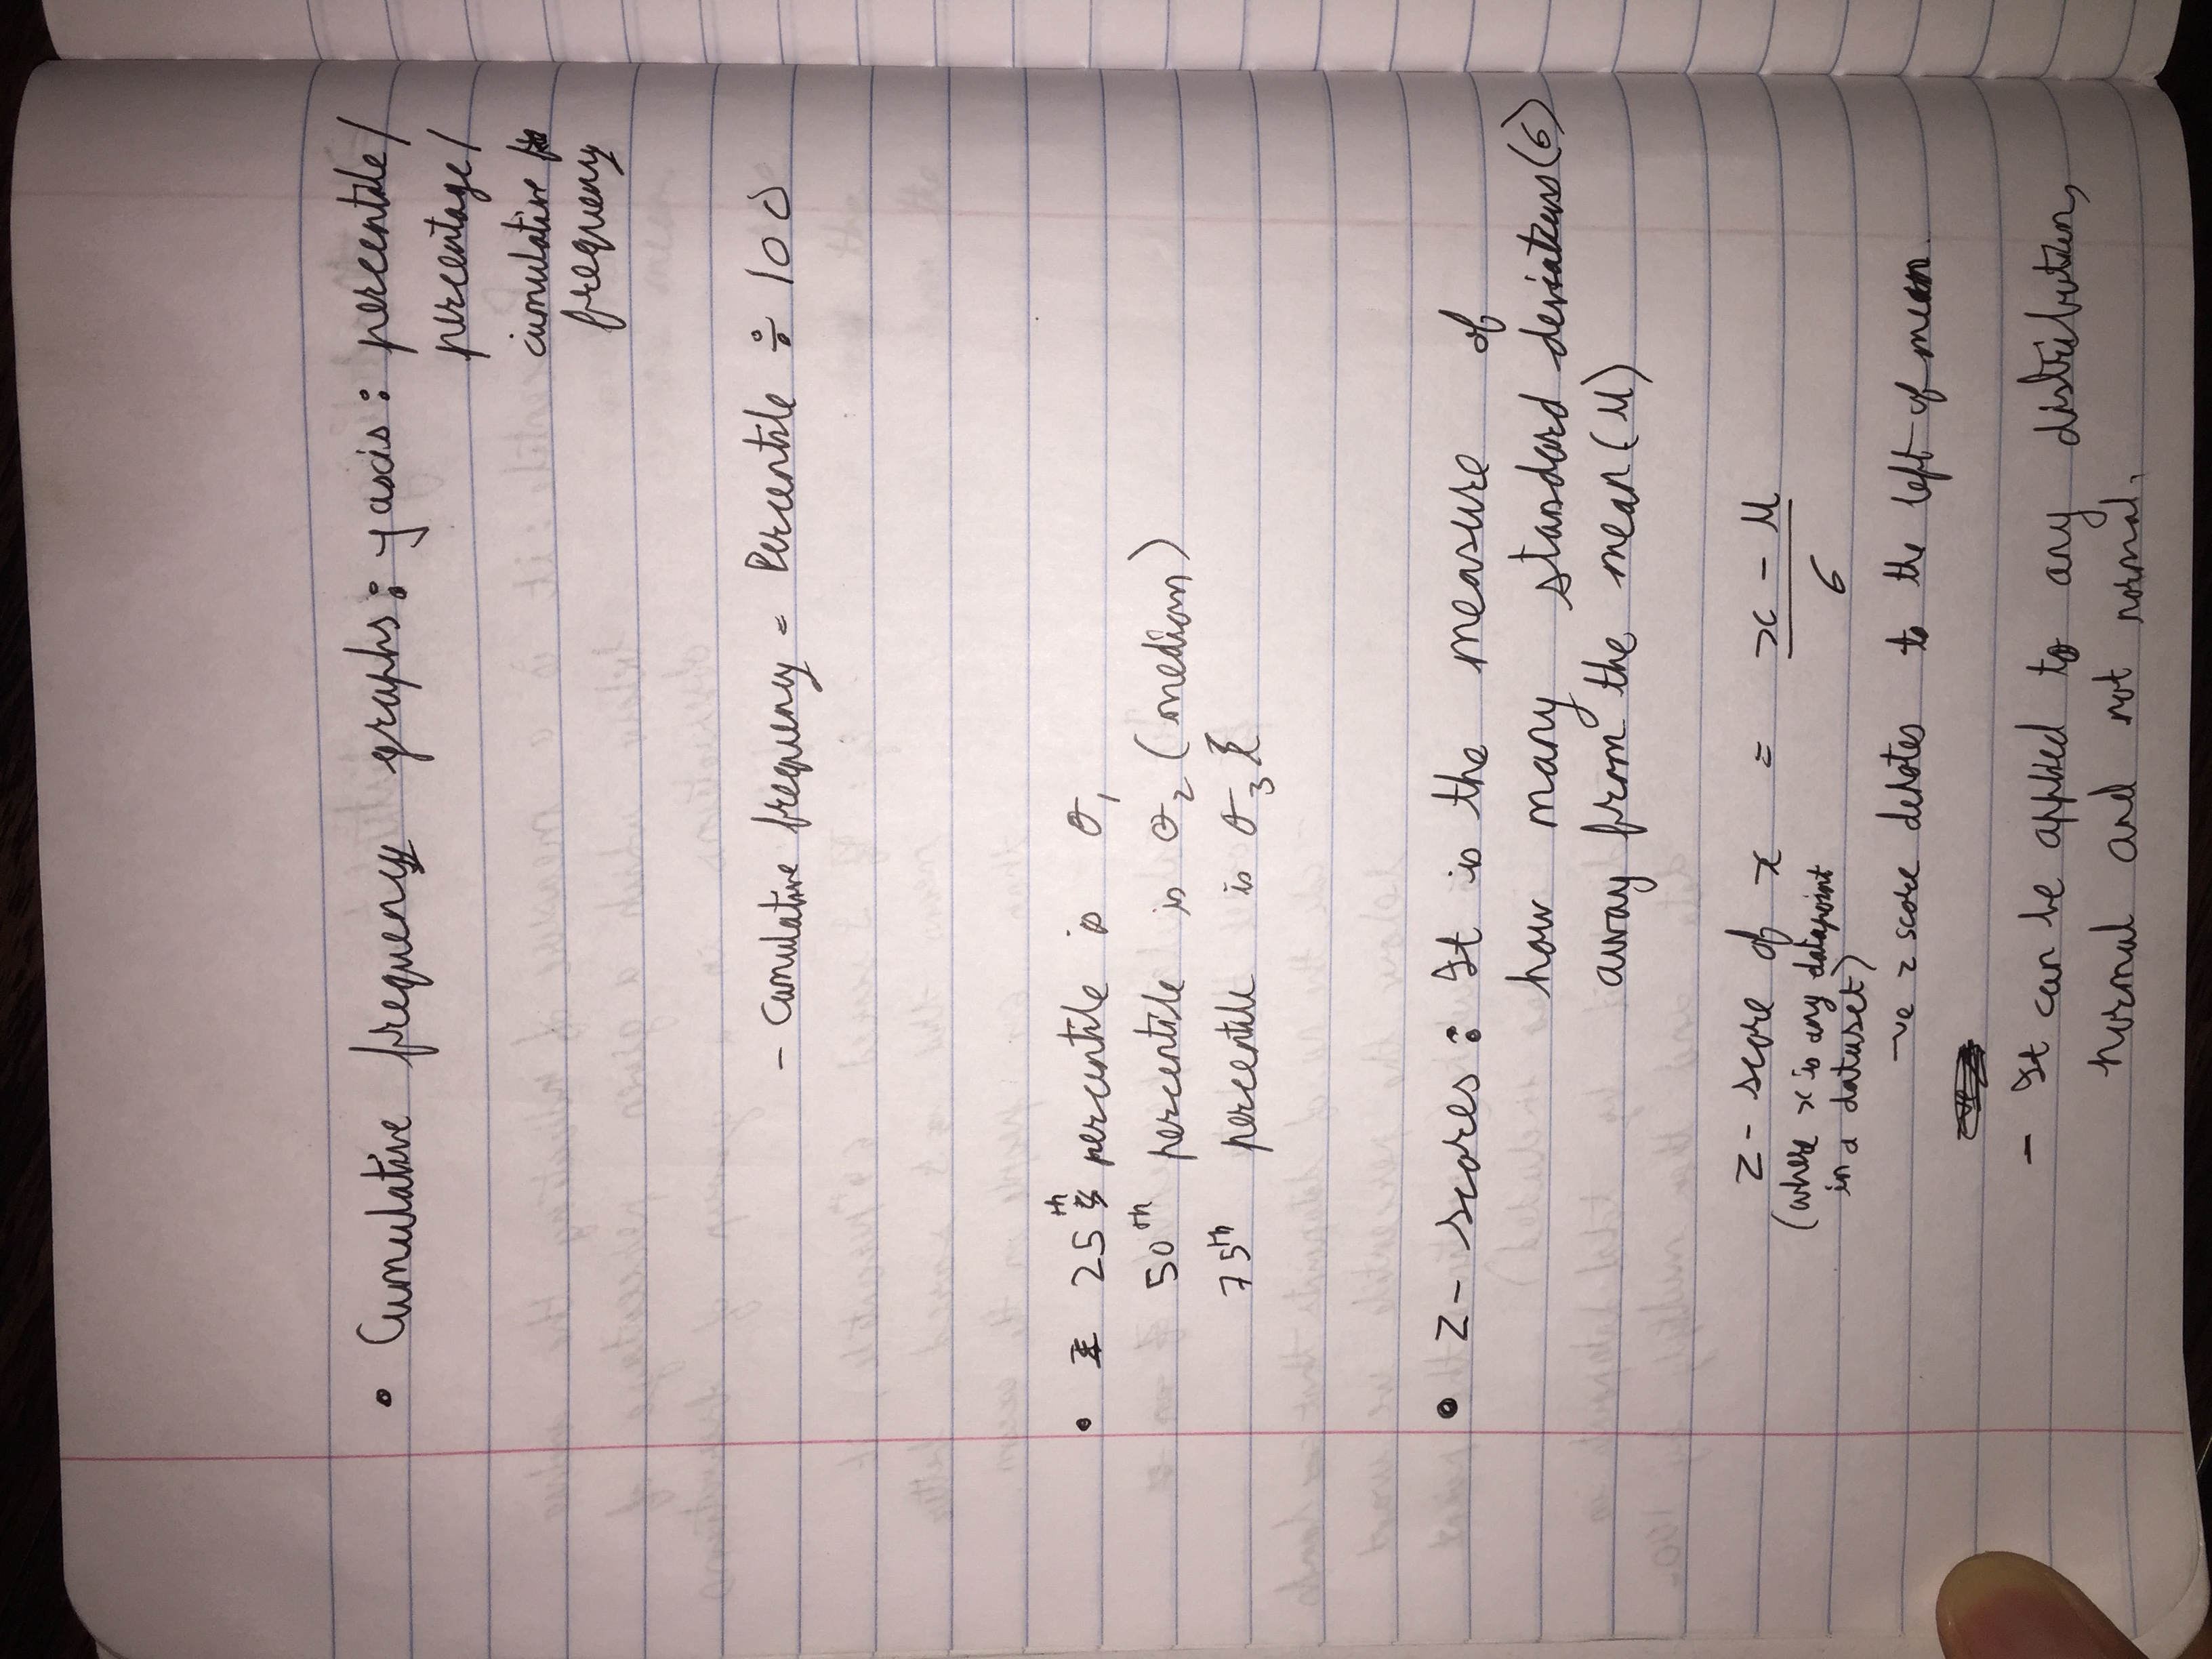 • Cumulative frequency graphs: y axis: percentile/
percentage/
cumulative
frequency
- Cumulative frequency = Percentile ÷ 100
• 25th percentile is σ1
50th percentile is σ2 (median)
75th percentile is σ3
• z-scores: It is the measure of
how many standard deviations (6)
away from the mean (μ)
z-score of x = x - μ
6
(where x is any datapoint
in a dataset)
-ve z score denotes to the left of mean.
- It can be applied to any distribution,
normal and not normal.